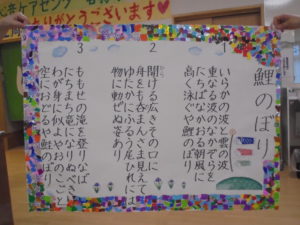 ケアセンター
ありがとうございます
鯉のぼり
1
いらかの波と雲の波
重なる波のなかぞらを
たちばなかおる朝風に
高く泳ぐや鯉のぼり
2
開ける広きその口に
舟をも呑まんさま見えて
ゆたかにふるう尾ひれには
物に動ぜぬ姿あり
3
ももせの滝を登りなば
たちまち竜になりぬべき
わが身に似よやおのこごと
空におどるや鯉のぼり